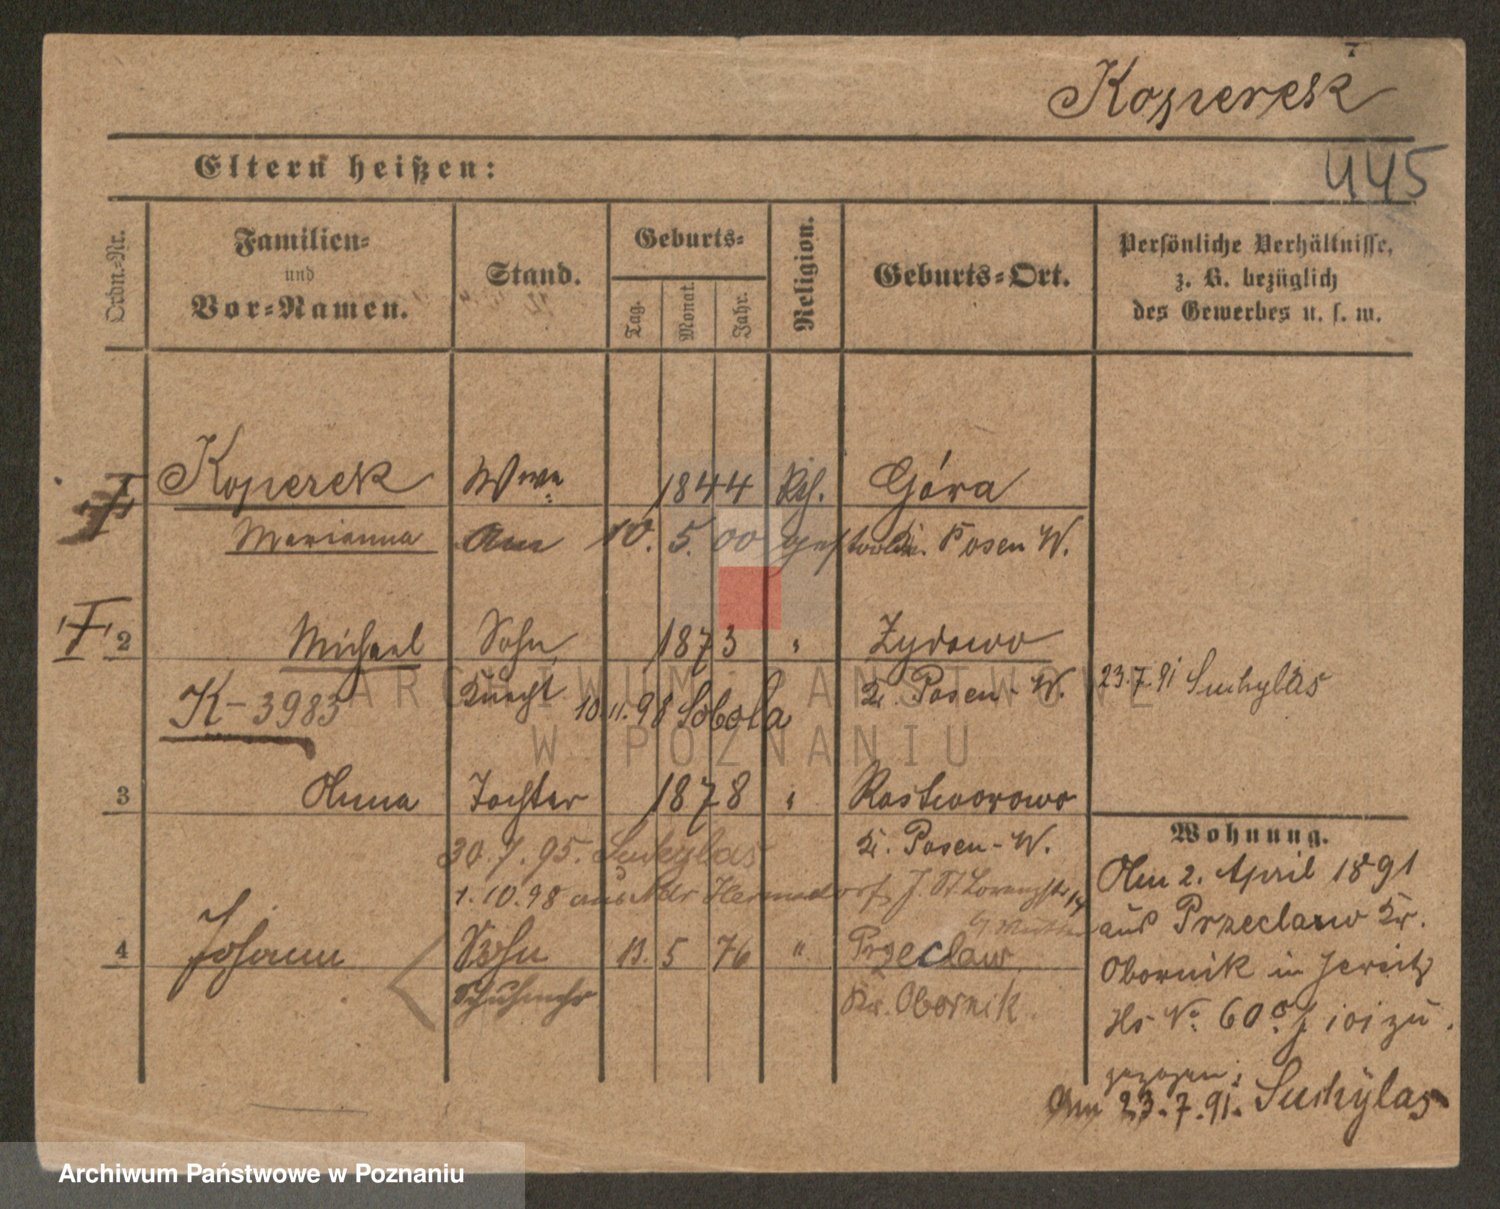 7
Koperek
Eltern heißen:
445
Ordn.-Nr.
Familien-
und
Vor-Namen.
Stand.
Geburts-
Tag.
Monat.
Jahr.
Religion.
Geburts-Ort.
Persönliche Verhältnisse,
z. B. bezüglich
des Gewerbes u. s. w.
Koperek Wwe 1844 Kth. Góra
Marianna Am 10. 5. 00 gestorben. Kr. Posen W.
2 Michael Sohn 1873 " Zydowo
Knecht Kr. Posen-W.
23.7.91 Suchylas
K-3983 10.11.98 Sobota
3 Anna Tochter 1878 " Rostworowo
Kr. Posen-W.
30.7.95. Suchylas
1.10.98 aus
4 Johann Sohn 13. 5 76 " Przeclaw
Kr. Obornik
Wohnung.
Am 2. April 1891
aus Przeclaw Kr.
Obornik in Jersitz
Hs No. 60
zu
gezogen;
Am 23.7.91. Suchylas
ARCHIWUM PAŃSTWOWE
W POZNANIU
Archiwum Państwowe w Poznaniu